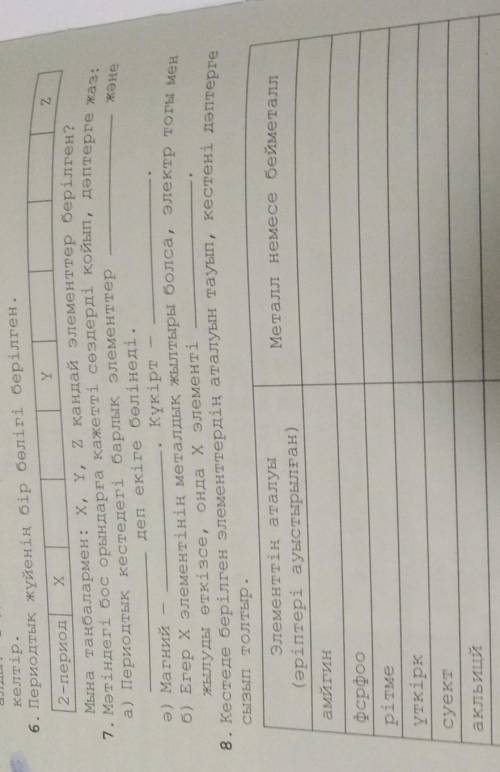 келтір.
6. Периодтық жүйенің бір бөлігі берілген.
2-период X Y Z
Мына таңбалармен: X, Y, Z қандай элементтер берілген?
7. Мәтіндегі бос орындарға қажетті сөздерді қойып, дәптерге жаз:
а) Периодтық кестедегі барлық элементтер ________ және
________ деп екіге бөлінеді.
ә) Магний – ________. Күкірт – ________.
б) Егер X элементінің металдық жылтыры болса, электр тогы мен
жылуды өткізсе, онда X элементі ________.
8. Кестеде берілген элементтердің аталуын тауып, кестені дәптерге
сызып толтыр.
Элементтің аталуы Металл немесе бейметалл
(әріптері ауыстырылған)
амйгин
фсрфоо
рітме
үткірк
суект
акльицй